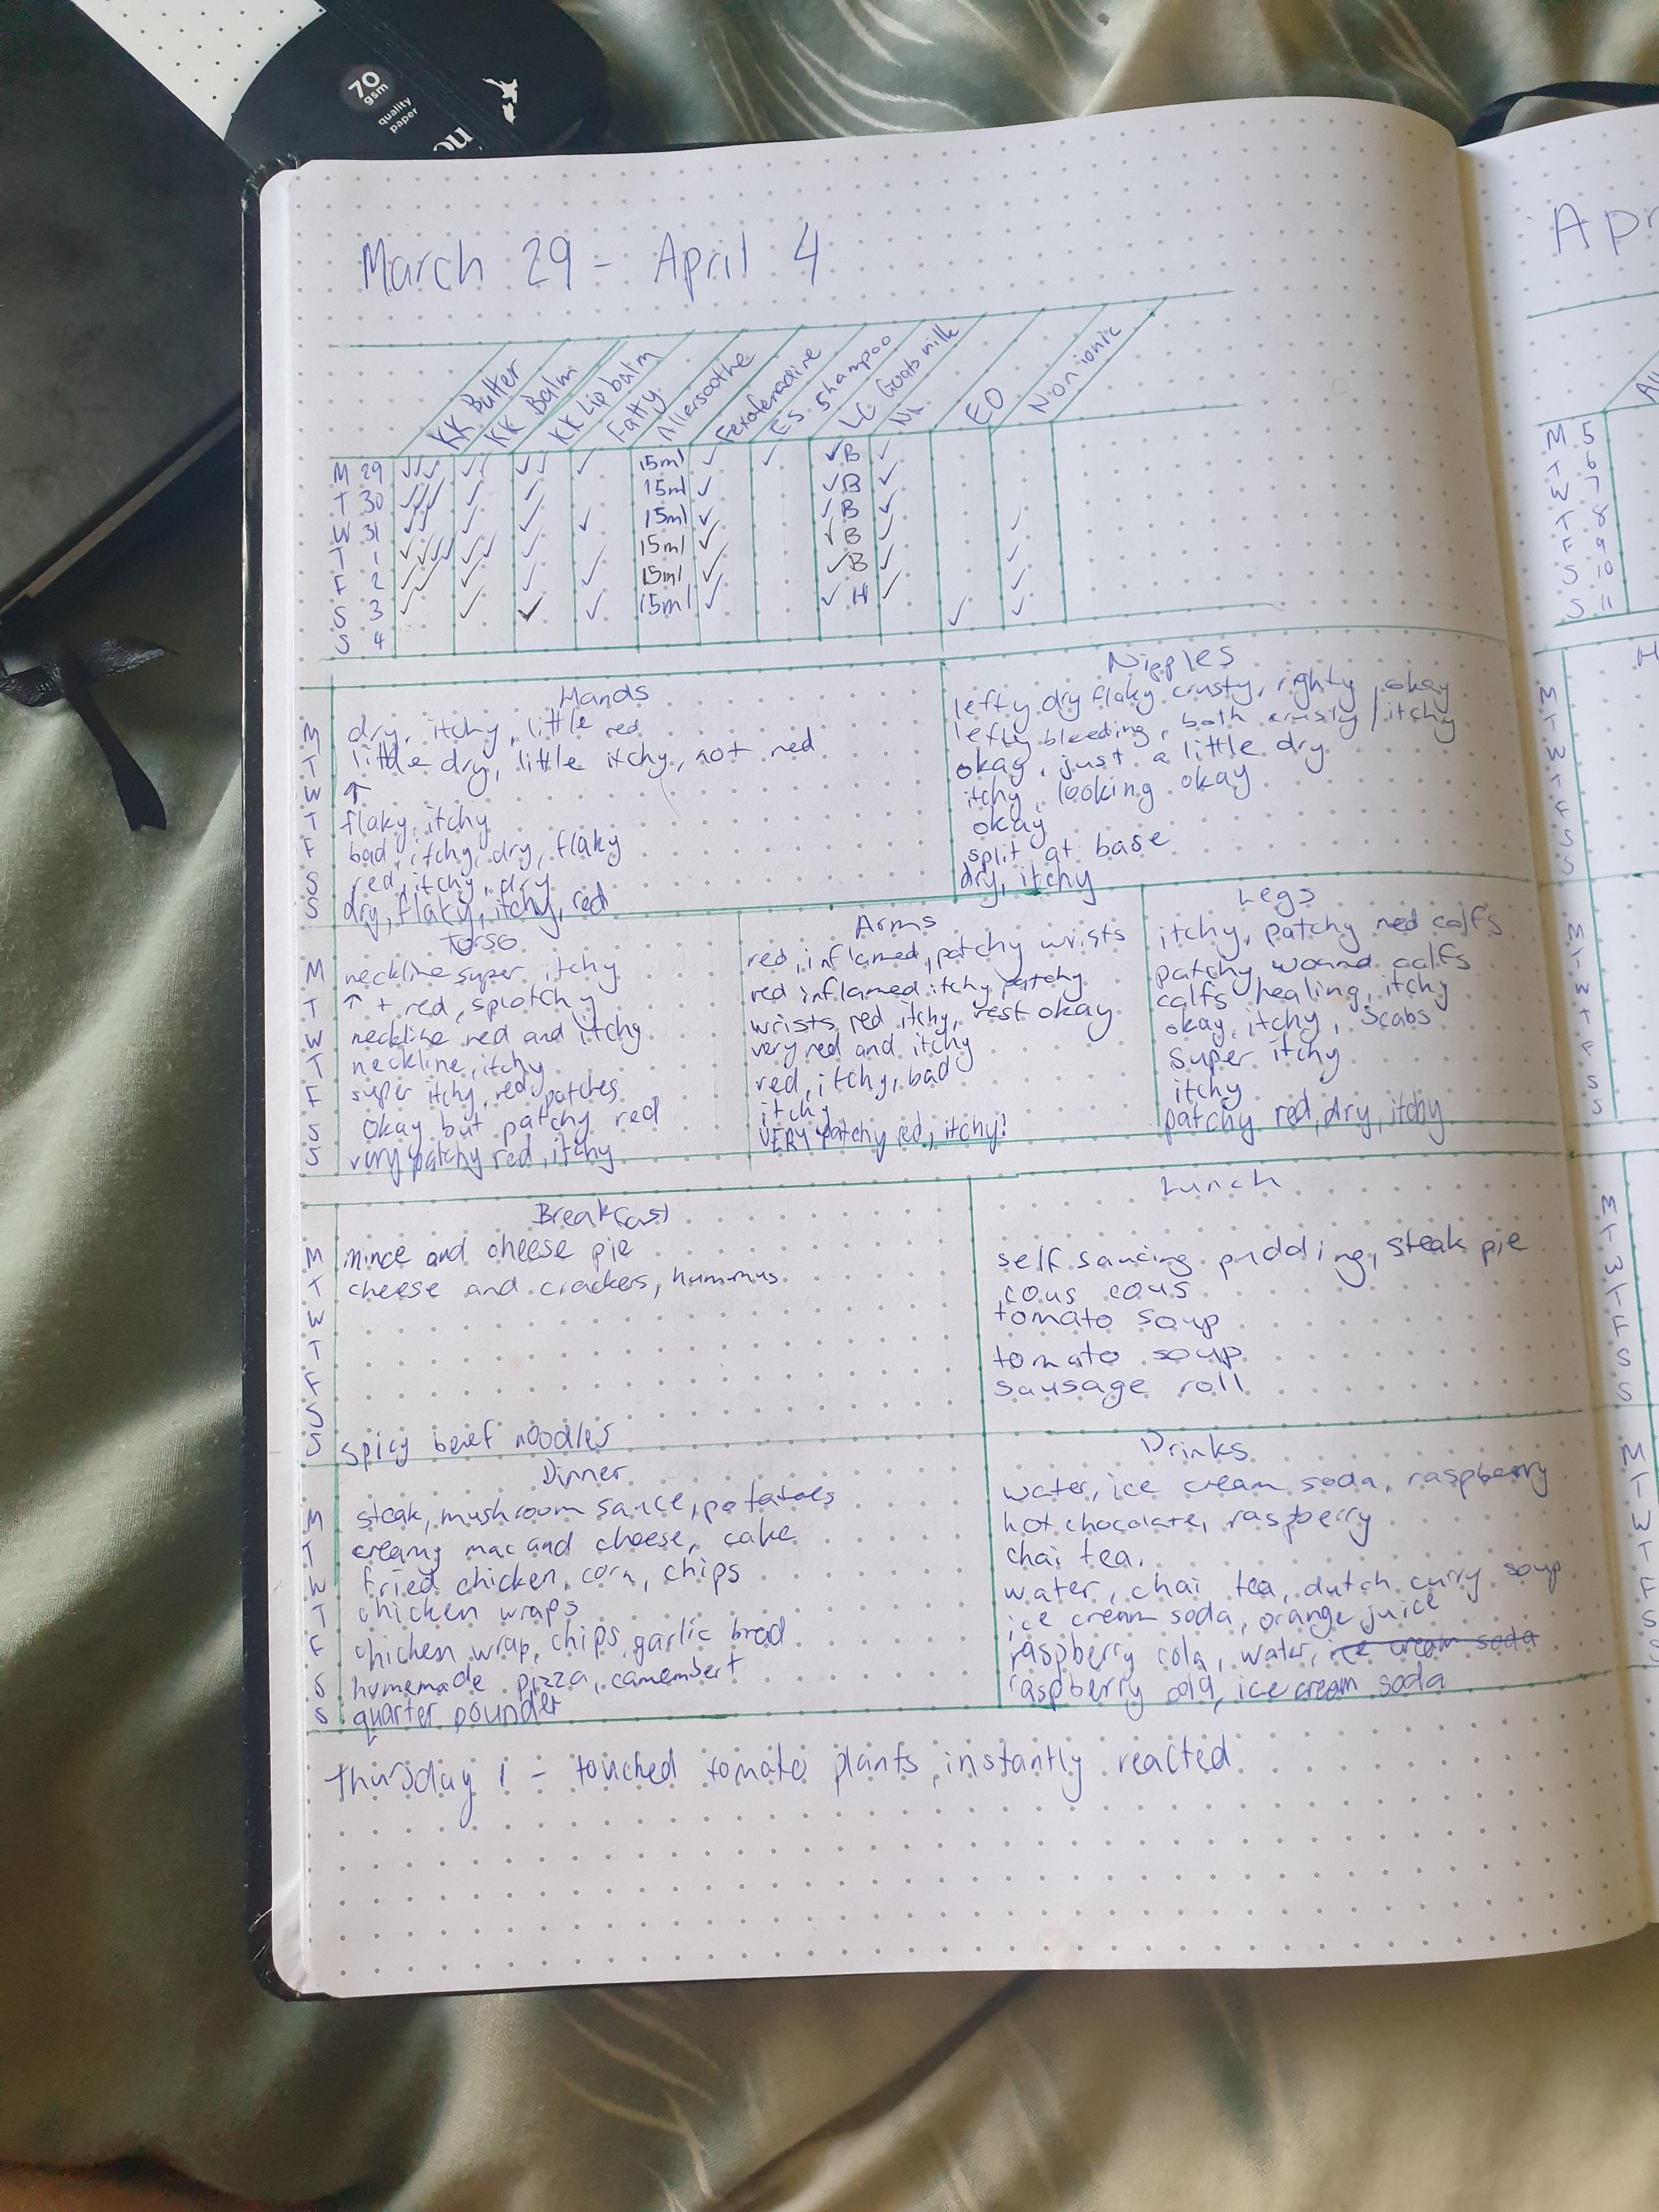 70
gsm
quality
paper
March 29 - April 4
KK Butter
KK Balm
KK Lip balm
Fatty
Allersoothe
Fexofenadine
ES Shampoo
LG Goats milk
NK
EO
Non ionic
M 29 ✓✓✓ ✓✓ ✓✓ ✓ 15ml ✓ ✓ ✓B ✓
T 30 ✓✓✓ ✓ ✓ 15ml ✓ ✓B ✓
W 31 ✓✓ ✓ ✓ ✓ 15ml ✓ ✓B ✓ ✓
T 1 ✓✓✓✓ ✓✓ ✓ 15ml ✓ ✓B ✓ ✓
F 2 ✓✓ ✓ ✓ ✓ 15ml ✓ ✓B ✓ ✓
S 3 ✓ ✓ ✓ ✓ 15ml ✓ ✓ H ✓ ✓ ✓
S 4
Hands
M dry, itchy, little red
T little dry, little itchy, not red
W ↑
T flaky, itchy
F bad, itchy, dry, flaky
S red, itchy, dry
S dry, flaky, itchy, red
Nipples
lefty dry flaky crusty, righty okay
lefty bleeding, both crusty, itchy
okay, just a little dry
itchy, looking okay
okay
split at base
dry, itchy
Torso
M neckline super itchy
T ↑ + red, splotchy
W neckline red and itchy
T neckline, itchy
F super itchy, red patches
S okay but patchy red
S very patchy red, itchy
Arms
red, inflamed, patchy wrists
red inflamed itchy patchy
wrists red itchy, rest okay
very red and itchy
red, itchy, bad
itchy
VERY patchy red, itchy!
Legs
itchy, patchy red calfs
patchy, wound calfs
calfs healing, itchy
okay, itchy, scabs
super itchy
itchy
patchy red, dry, itchy
Breakfast
M mince and cheese pie
T cheese and crackers, hummus
W
T
F
S
S spicy beef noodles
Lunch
self saucing pudding, steak pie
cous cous
tomato soup
tomato soup
sausage roll
Dinner
M steak, mushroom sauce, potatoes
T creamy mac and cheese, cake
W fried chicken, corn, chips
T chicken wraps
F chicken wrap, chips, garlic bread
S homemade pizza, camembert
S quarter pounder
Drinks
water, ice cream soda, raspberry
hot chocolate, raspberry
chai tea.
water, chai tea, dutch curry soup
ice cream soda, orange juice
raspberry cola, water, ice cream soda
raspberry cola, ice cream soda
Thursday 1 - touched tomato plants, instantly reacted
Apr
M 5
T 6
W 7
T 8
F 9
S 10
S 11
H
M
T
W
T
F
S
S
M
T
W
T
F
S
S
M
T
W
T
F
S
S
M
T
W
T
F
S
S